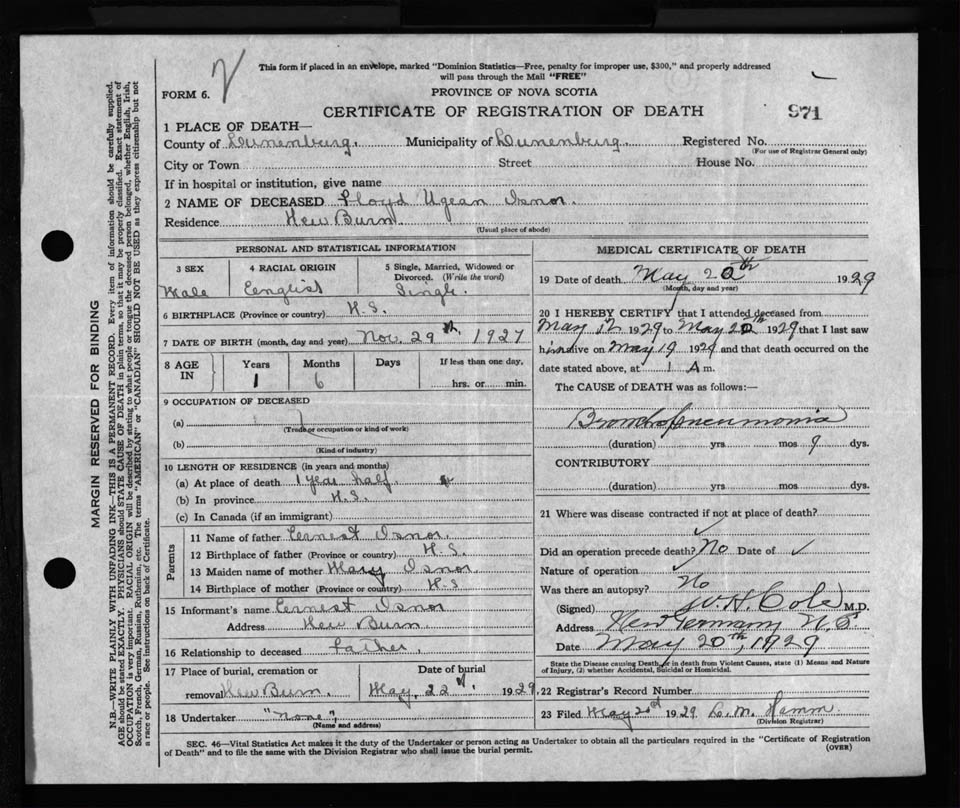 This form if placed in an envelope, marked "Dominion Statistics—Free, penalty for improper use, $300," and properly addressed
will pass through the Mail "FREE"
FORM 6.
PROVINCE OF NOVA SCOTIA
CERTIFICATE OF REGISTRATION OF DEATH
971
1 PLACE OF DEATH—
County of Lunenburg. Municipality of Lunenburg. Registered No.
(For use of Registrar General only)
City or Town Street House No.
If in hospital or institution, give name
2 NAME OF DECEASED Floyd Ugean Isnor.
Residence New Burn
(Usual place of abode)
PERSONAL AND STATISTICAL INFORMATION
3 SEX 4 RACIAL ORIGIN 5 Single, Married, Widowed or Divorced. (Write the word)
Male English Single.
6 BIRTHPLACE (Province or country) N.S.
7 DATE OF BIRTH (month, day and year) Nov. 29th, 1927
8 AGE IN Years Months Days If less than one day,
1 6 hrs. or min.
9 OCCUPATION OF DECEASED
(a)
(Trade or occupation or kind of work)
(b)
(Kind of industry)
10 LENGTH OF RESIDENCE (in years and months)
(a) At place of death 1 year half
(b) In province N.S.
(c) In Canada (if an immigrant)
Parents
11 Name of father Ernest Isnor.
12 Birthplace of father (Province or country) N.S.
13 Maiden name of mother Mary Isnor.
14 Birthplace of mother (Province or country) N.S
15 Informant's name Ernest Isnor
Address New Burn
16 Relationship to deceased Father.
17 Place of burial, cremation or Date of burial
removal New Burn. May, 22nd. 1929
18 Undertaker "None"
(Name and address)
MEDICAL CERTIFICATE OF DEATH
19 Date of death May 20th 1929
(Month, day and year)
20 I HEREBY CERTIFY that I attended deceased from
May 12 1929 to May 20th 1929 that I last saw
him alive on May 19 1929 and that death occurred on the
date stated above, at 1 A m.
The CAUSE of DEATH was as follows:—
Bronchopneumonia
(duration) yrs mos 9 dys.
CONTRIBUTORY
(duration) yrs. mos. dys.
21 Where was disease contracted if not at place of death?
Did an operation precede death? No Date of ✓
Nature of operation ✓
Was there an autopsy? No
(Signed) W.H. Cole M.D.
Address New Germany N.S.
Date May 20th, 1929
State the Disease causing Death, or in death from Violent Causes, state (1) Means and Nature
of Injury, (2) whether Accidental, Suicidal or Homicidal.
22 Registrar's Record Number
23 Filed May 1929 L.M. Hamm
(Division Registrar)
SEC. 46—Vital Statistics Act makes it the duty of the Undertaker or person acting as Undertaker to obtain all the particulars required in the "Certificate of Registration
of Death" and to file the same with the Division Registrar who shall issue the burial permit.
(OVER)
MARGIN RESERVED FOR BINDING
N.B.—WRITE PLAINLY WITH UNFADING INK—THIS IS A PERMANENT RECORD. Every item of information should be carefully supplied.
AGE should be stated EXACTLY. PHYSICIANS should STATE CAUSE OF DEATH in plain terms, so that it may be properly classified. Exact statement of
OCCUPATION is very important. RACIAL ORIGIN will be described by stating to what people or tongue the deceased person belonged, whether English, Irish,
Scotch, French, German, Russian, Ruthenian, etc. The terms "AMERICAN" or "CANADIAN" SHOULD NOT BE USED as they express citizenship but not
a race or people. See instructions on back of Certificate.